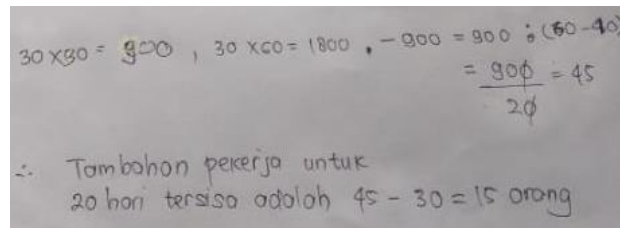 30 x30 = 900 , 30 x60 = 1800 , - 900 = 900 : (60 - 40)
= 900 = 45
20
∴ Tambahan pekerja untuk
20 hari tersisa adalah 45 - 30 = 15 orang